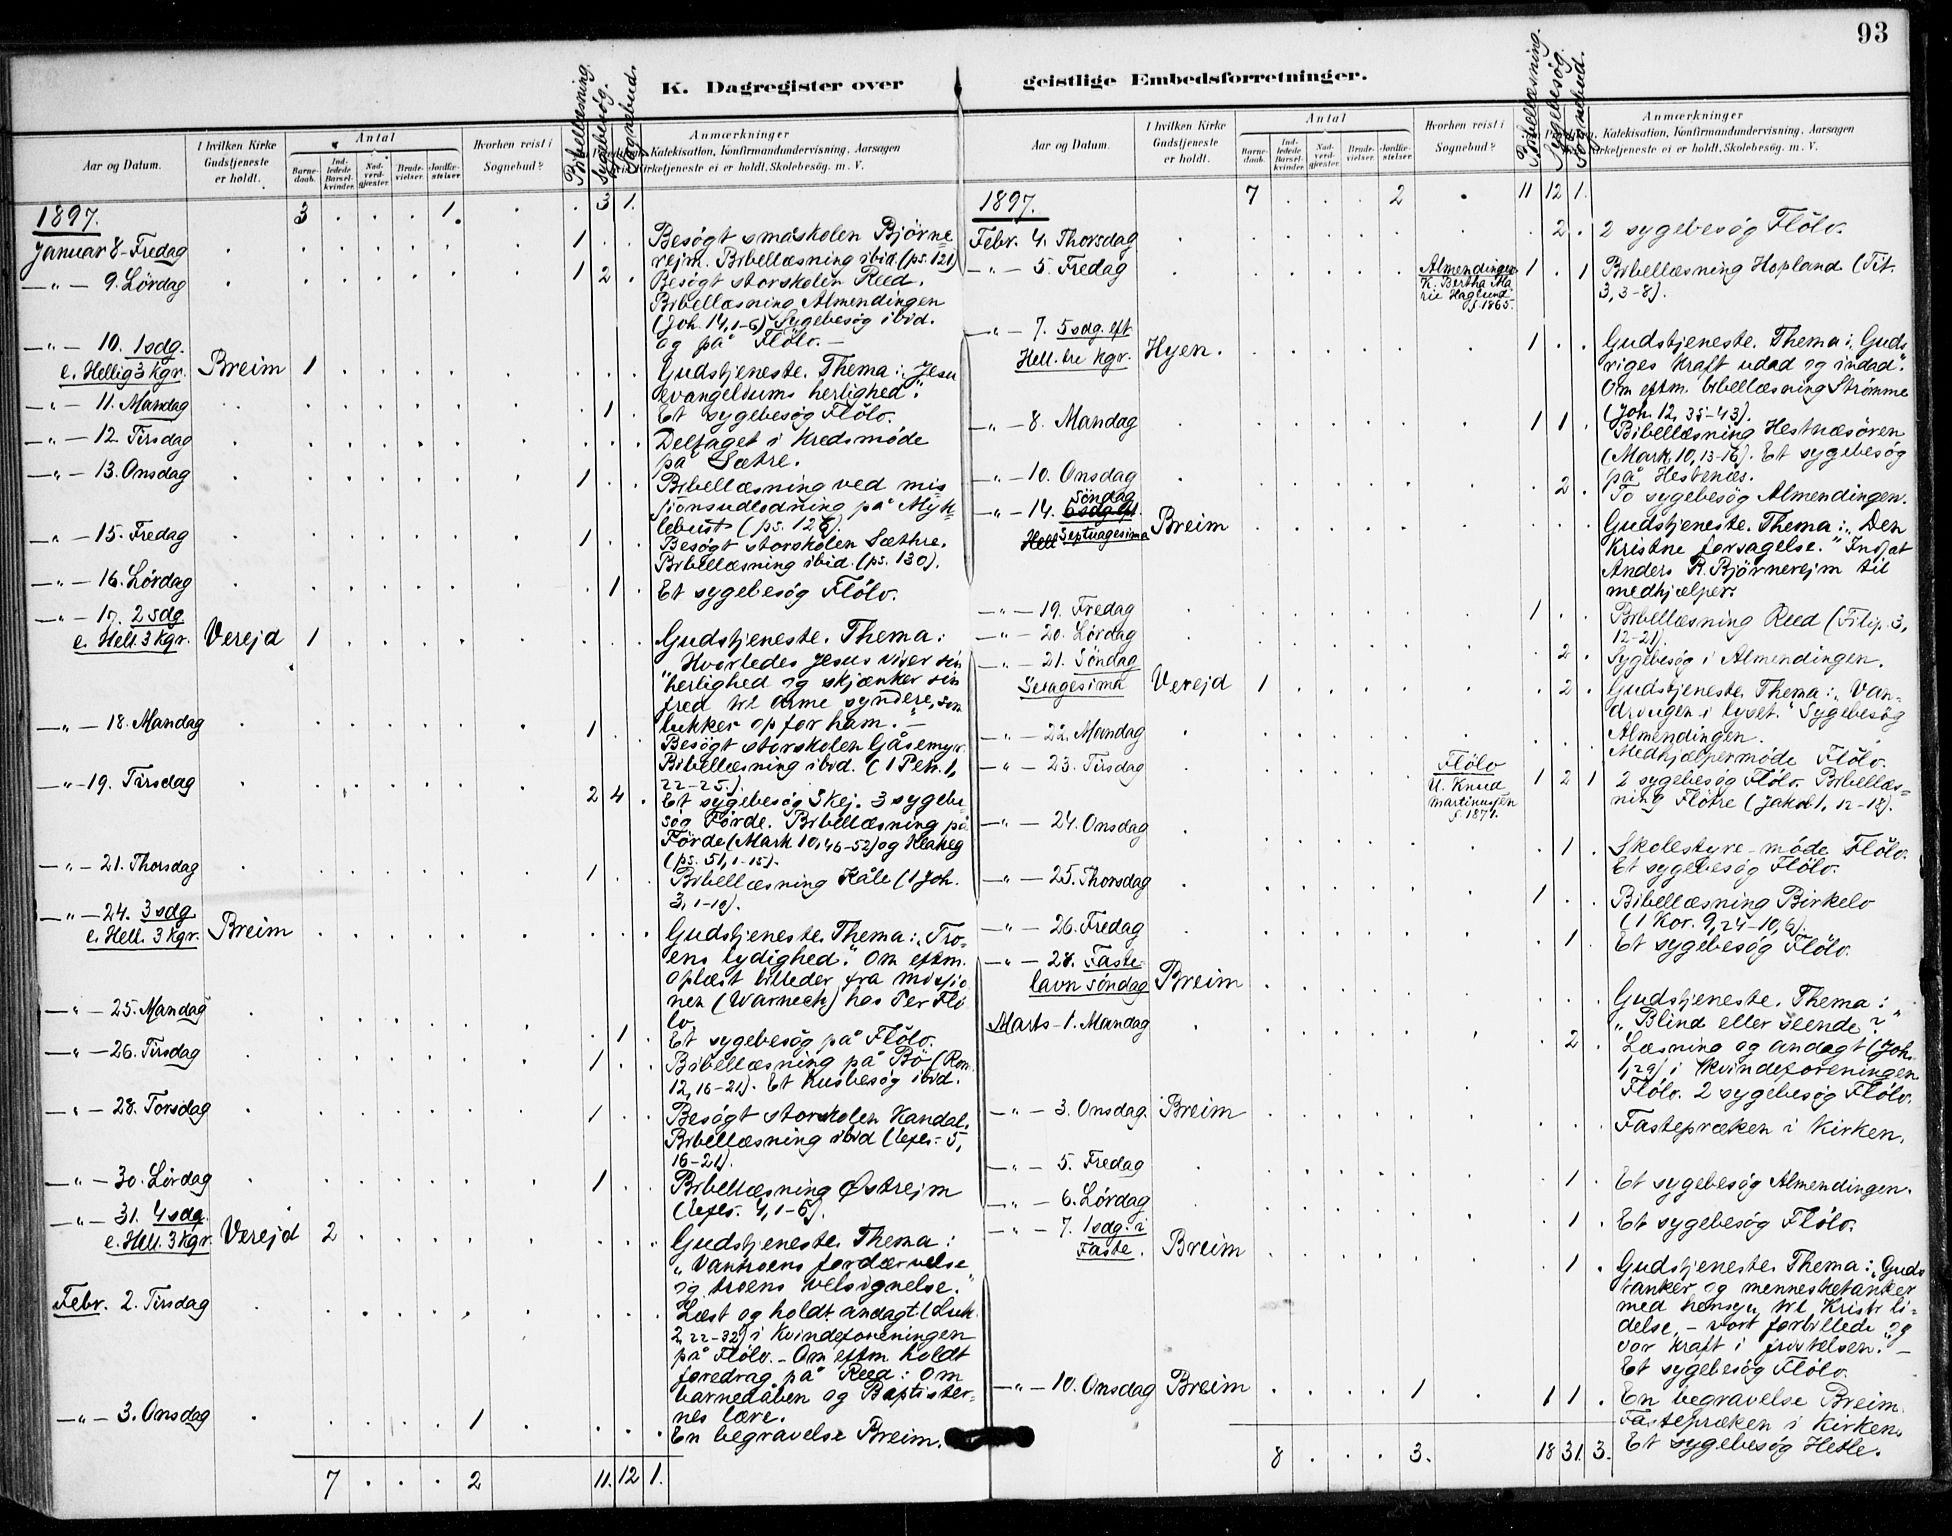 93
K. Dagregister over geistlige Embedsforretninger.
Bibellæsning.
Sygebesøg.
Sognebud.
Aar og Datum.
I hvilken Kirke Gudstjeneste er holdt.
Antal
Barnedaab.
Indledede Barselkvinder.
Nadverdgjester.
Brudevielser.
Jordfæstelser.
Hvorhen reist i Sognebud?
Anmærkninger
Katekisation, Konfirmandundervisning, Aarsagen
hvis Kirketjeneste ei er holdt. Skolebesøg. m. V.
1897. 3 . . . 1. . . 3 1.
Januar 8 - Fredag 1 . . Besøgt småskolen Bjørne-
rejm. Bibellæsning ibid. (ps. 121)
— " — 9. Lördag 1 2 . Besøgt storskolen Reed.
Bibellæsning Almendingen
(Joh. 14, 1-6) Sygebesøg ibid.
og på Flölo. —
— " — 10. 1 sdg.
e. Hellig 3 kgr. Breim 1 Gudstjeneste. Thema: „Jesu
evangeliums herlighed".
— " — 11. Mandag . 1 . Et sygebesøg Flölo.
— " — 12. Tirsdag Deltaget i Kredsmøde
på Sætre.
— " — 13. Onsdag 1 . . Bibellæsning ved mis
sionsudlodning på Myk-
lebust (ps. 126).
— " — 15. Fredag 1 . . Besøgt storskolen Sæthre.
Bibellæsning ibid. (ps. 130).
— " — 16. Lördag . 1 . Et sygebesøg Flölo.
— " — 17. 2 sdg
e. Hell. 3 kgr. Verejd 1 Gudstjeneste. Thema:
„Hvorledes Jesus viser sin
herlighed og skjænker sin
fred til arme syndere, som
lukker op for ham." —
— " — 18. Mandag 1 . . Besøgt storskolen Gåsemyr.
Bibellæsning ibid. (1 Petr. 1,
22-25.)
— " — 19. Tirsdag 2 4 . Et sygebesøg Skej. 3 sygebe-
søg Förde. Bibellæsning på
Förde (Mark 10, 46-52) og
(ps. 51, 1-15).
— " — 21. Thorsdag 1 . . Bibellæsning Kåle (1 Joh.
3, 1-10).
— " — 24. 3 sdg.
e. Hell. 3 kgr. Breim Gudstjeneste. Thema: „Tro-
ens lydighed". Om eftm.
oplæst billeder fra missio-
nen (Warneck) hos Per Flö
lo.
— " — 25. Mandag . 1 . Et sygebesøg på Flölo.
— " — 26. Tirsdag 1 . . Bibellæsning på Bö (Rom.
12, 16-21). Et husbesøg ibid.
— " — 28. Torsdag 1 . . Besøgt storskolen Kandal.
Bibellæsning ibid (Efes. 5,
16-21).
— " — 30. Lördag 1 . . Bibellæsning Østrejm
(Efes. 4, 1-6).
— " — 31. 4 sdg.
e. Hell. 3 kgr. Verejd 2 Gudstjeneste. Thema:
„Vantroens fordærvelse
og troens velsignelse."
Febr. 2. Tirsdag Læst og holdt andagt (Luk.
2, 22-32) i Kvindeforeningen
på Flölo. — Om eftm holdt
foredrag på Reed: Om
barnedåben og Baptister-
nes lære.
— " — 3. Onsdag 1 En begravelse Breim.
7 . . . 2 11. 12 1.
Aar og Datum.
I hvilken Kirke Gudstjeneste er holdt.
Antal
Barnedaab.
Indledede Barselkvinder.
Nadverdgjester.
Brudevielser.
Jordfæstelser.
Hvorhen reist i Sognebud?
Bibellæsning.
Sygebesøg.
Sognebud.
Anmærkninger
Katekisation, Konfirmandundervisning, Aarsagen
hvis Kirketjeneste ei er holdt. Skolebesøg. m. V.
1897. 7 . . . 2 . 11 12 1.
Febr. 4. Thorsdag . 2 . 2 sygebesøg Flölo.
— " — 5. Fredag Almendingen
K. Bertha Ma
rie Haglund
f. 1865. 1 . 1 Bibellæsning Hopland (Tit.
3, 3-8).
— " — 7. 5 sdg. eft
Hell. tre kgr. Hyen. 1 . . Gudstjeneste. Thema: „Guds
riges kraft udad og indad".
Om eftm. bibellæsning Strømme
(Joh. 12, 35-43).
— " — 8. Mandag 1 1 . Bibellæsning Hestnæsören
(Mark. 10, 13-16). Et sygebesøg
på Hestenæs.
— " — 10. Onsdag . 2 . To sygebesøg Almendingen.
— " — 14. Söndag
Septuagesima Breim Gudstjeneste. Thema: „Den
Kristne forsagelse." Indsat
Anders R. Bjørnerejm til
medhjælper.
— " — 19. Fredag 1 . . Bibellæsning Reed (Filip. 3,
12-21).
— " — 20. Lördag . 2 . Sygebesøg i Almendingen.
— " — 21. Söndag
Sexagesima Verejd 1 . 2 . Gudstjeneste. Thema: „Van-
dringen i lyset." Sygebesøg
Almendingen.
— " — 22. Mandag Medhjælpermöde Flölo.
— " — 23. Tirsdag Flölo
U. Knud
Martinusen
f. 1871. 1 2 1 2 sygebesøg Flölo. Bibellæs-
ning Flötre (Jakob 1, 12-18).
— " — 24. Onsdag . 1 . Skolestyre-möde Flölo.
Et sygebesøg Flölo.
— " — 25. Thorsdag 1 . . Bibellæsning Birkelo
(1 Kor. 9, 24-10, 6).
— " — 26. Fredag . 1 . Et sygebesøg Flölo.
— " — 28. Faste-
lavn söndag Breim Gudstjeneste. Thema:
„Blind eller seende?"
Marts - 1. Mandag . 2 . Læsning og andagt (Joh.
1, 29) i Kvindeforeningen
Flölo. 2 sygebesøg Flölo.
— " — 3. Onsdag. Breim Fastepræken i Kirken.
— " — 5. Fredag . 1 . Et sygebesøg Almendingen.
— " — 6. Lördag . 1 . Et sygebesøg Flölo.
— " — 7. 1 sdg. i
Faste. Breim . 1 . Gudstjeneste. Thema: „Guds
tanker og mennesketanker
med hensyn til Kristi li-
delse, — vort forbillede og
vor kraft i fristelsen. —
Et sygebesøg Flölo.
— " — 10. Onsdag Breim 1 . 1 1 . En begravelse Breim.
Fastepræken i Kirken.
Et sygebesøg Hetle.
8 . . . 3. 18 31. 3.